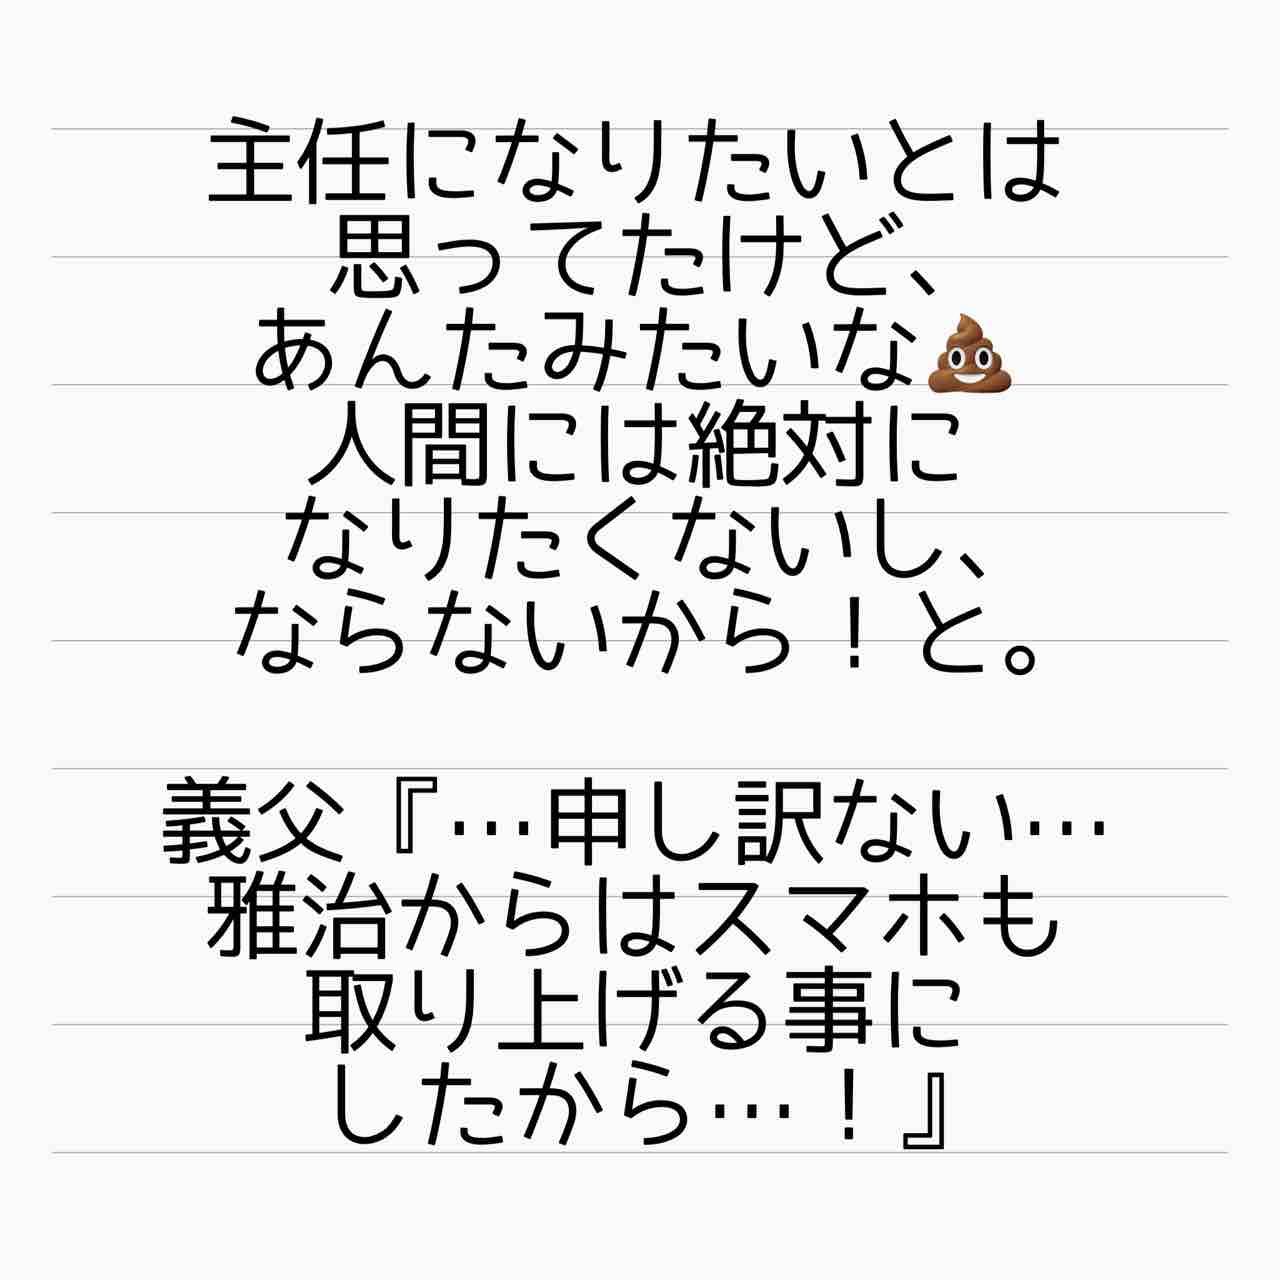 主任になりたいとは
思ってたけど、
あんたみたいな💩
人間には絶対に
なりたくないし、
ならないから！と。
義父『…申し訳ない…
雅治からはスマホも
取り上げる事に
したから…！』